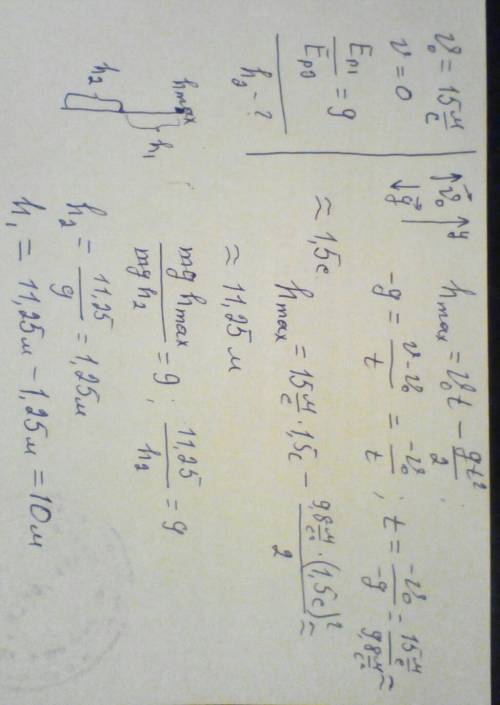 v₀ = 15 м/с
v = 0
Eп1/Eп2 = 9
h₂ - ?
v₀ y
g
hmax
h₁
h₂
hmax = v₀t - gt²/2;
-g = (v - v₀)/t = -v₀/t; t = -v₀/-g = 15 м/с / 9,8 м/с² ≈
≈ 1,5с
hmax = 15 м/с · 1,5с - (9,8 м/с² · (1,5с)²)/2 ≈
≈ 11,25 м
mg hmax / mg h₂ = 9; 11,25/h₂ = 9
h₂ = 11,25/9 = 1,25м
h₁ = 11,25м - 1,25м = 10м